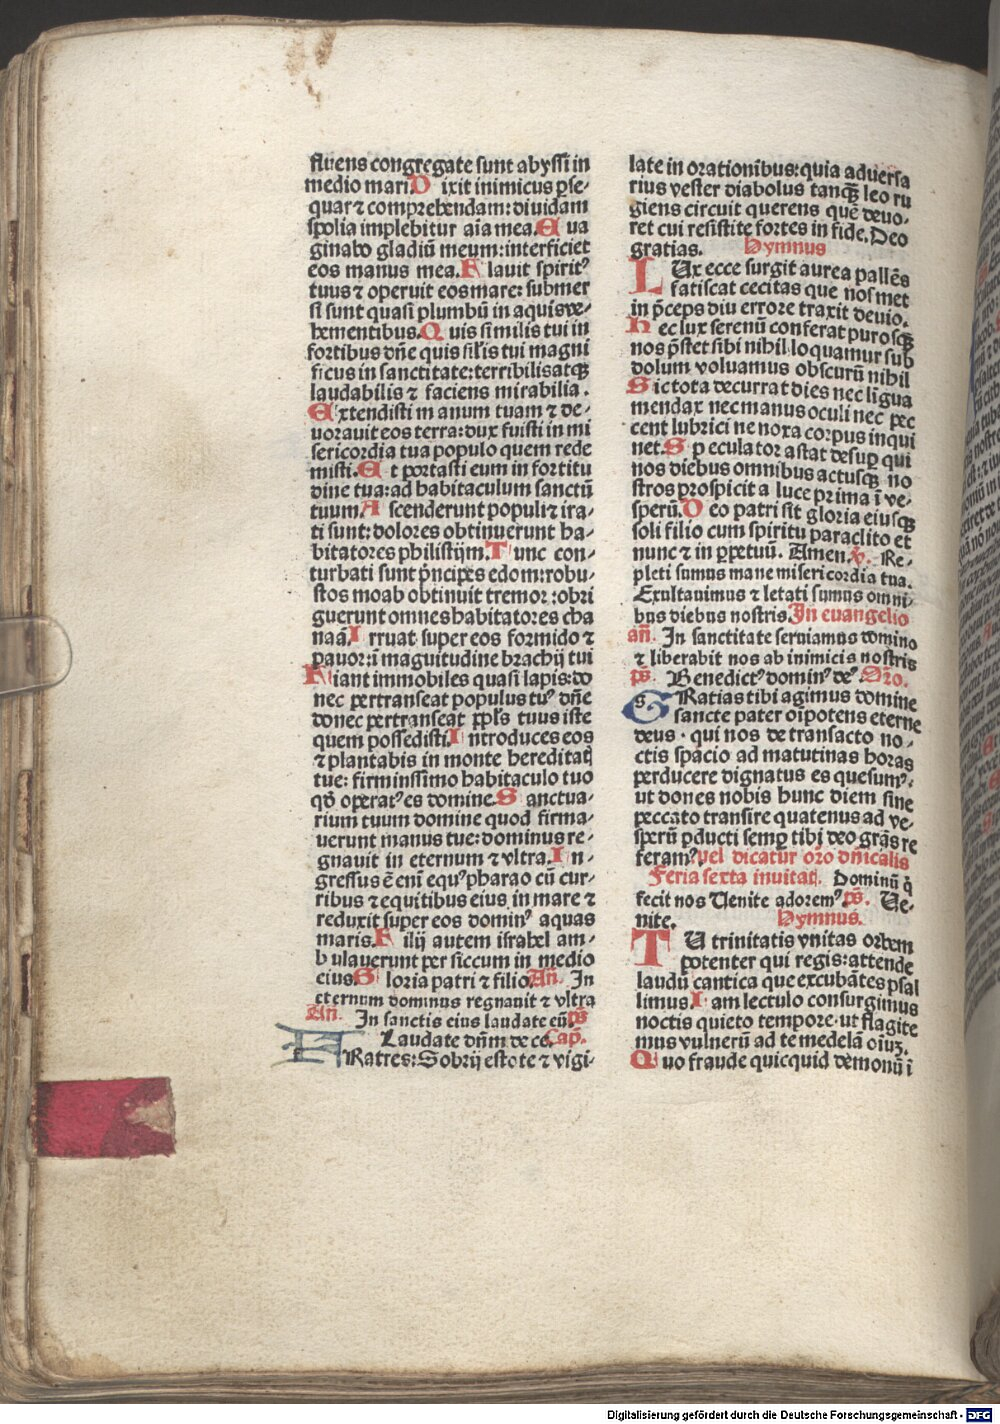 fluens congregate sunt abyssi in
medio mari. D ixit inimicus ꝑse⸗
quar ⁊ comprehendam: diuidam
spolia implebitur aīa mea. E ua
ginabo gladiū meum: interficiet
eos manus mea. F lauit spiritꝰ
tuus ⁊ operuit eos mare: submer
si sunt quasi plumbū in aquis ve⸗
hementibus. Q uis similis tui in
fortibus dn̄e quis sil̄is tui magni
ficus in sanctitate: terribilis atqꝫ
laudabilis ⁊ faciens mirabilia.
E xtendisti manum tuam ⁊ de⸗
uorauit eos terra: dux fuisti in mi
sericordia tua populo quem rede
misti. E t portasti eum in fortitu
dine tua: ad habitaculum sanctū
tuum. A scenderunt populi ⁊ ira⸗
ti sunt: dolores obtinuerunt ha⸗
bitatores philistijm. T unc con⸗
turbati sunt pn̄cipes edom: robu⸗
stos moab obtinuit tremor: obri
guerunt omnes habitatores cha
naā. I rruat super eos formido ⁊
pauor: ī maguitudine brachij tui
F iant immobiles quasi lapis: do
nec pertranseat populus tuꝰ dn̄e
donec pertranseat ppl̄s tuus iste
quem possedisti. I ntroduces eos
⁊ plantabis in monte hereditatꝭ
tue: firmissimo habitaculo tuo
qd̄ operatꝰ es domine. S anctua⸗
rium tuum domine quod firma⸗
uerunt manus tue: dominus re⸗
gnauit in eternum ⁊ vltra. I n⸗
gressus ē enī equꝰ pharao cū cur⸗
ribus ⁊ equitibus eius in mare ⁊
reduxit super eos dominꝰ aquas
maris. F ilij autem israhel am⸗
bulauerunt per siccum in medio
eius. G loria patri ⁊ filio. An̄. In
eternum dominus regnauit ⁊ vltra
An̄. In sanctis eius laudate eū. ps̄
Laudate dn̄m de ce. Cap̄.
F Ratres: Sobrij estote ⁊ vigi⸗
late in orationibus: quia aduersa
rius vester diabolus tanqꝫ leo ru
giens circuit querens quē deuo⸗
ret cui resistite fortes in fide. Deo
gratias. Hymnus
L Ux ecce surgit aurea pallēs
fatiscat cecitas que nosmet
in p̄ceps diu errore traxit deuio.
H ec lux serenū conferat purosqꝫ
nos p̄stet sibi nihil loquamur sub
dolum voluamus obscurū nihil
S ic tota decurrat dies nec ligua
mendax nec manus oculi nec pec
cent lubrici ne noxa corpus inqui
net. S peculator astat desuꝑ qui
nos diebus omnibus actusqꝫ no
stros prospicit a luce prima ī ve⸗
sperū. D eo patri sit gloria eiusqꝫ
soli filio cum spiritu paraclito et
nunc ⁊ in ꝑpetuū. Amen. v̄. Re⸗
pleti sumus mane misericordia tua.
Exultauimus ⁊ letati sumus omni⸗
bus diebus nostris. In euangelio
an̄. In sanctitate seruiamus domino
⁊ liberabit nos ab inimicis nostris
ps̄. Benedictꝰ dominꝰ deꝰ. Oro.
G Ratias tibi agimus domine
sancte pater oīpotens eterne
deus. qui nos de transacto no⸗
ctis spacio ad matutinas horas
perducere dignatus es quesumꝰ.
ut dones nobis hunc diem sine
peccato transire quatenus ad ve⸗
sperū ꝑducti semꝑ tibi deo grās re
feramꝰ. vel dicatur oro dn̄icalis
Feria sexta inuitat̄. Dominū q̇
fecit nos Uenite adoremꝰ. ps̄. Ue⸗
nite. Hymnus.
T U trinitatis vnitas orbem
potenter qui regis: attende
laudū cantica que excubātes psal
limus. I am lectulo consurgimus
noctis quieto tempore. ut flagite
mus vulnerū ad te medelā oīuꝫ.
Q uo fraude quicquid demonū ī
Digitalisierung gefördert durch die Deutsche Forschungsgemeinschaft - DFG